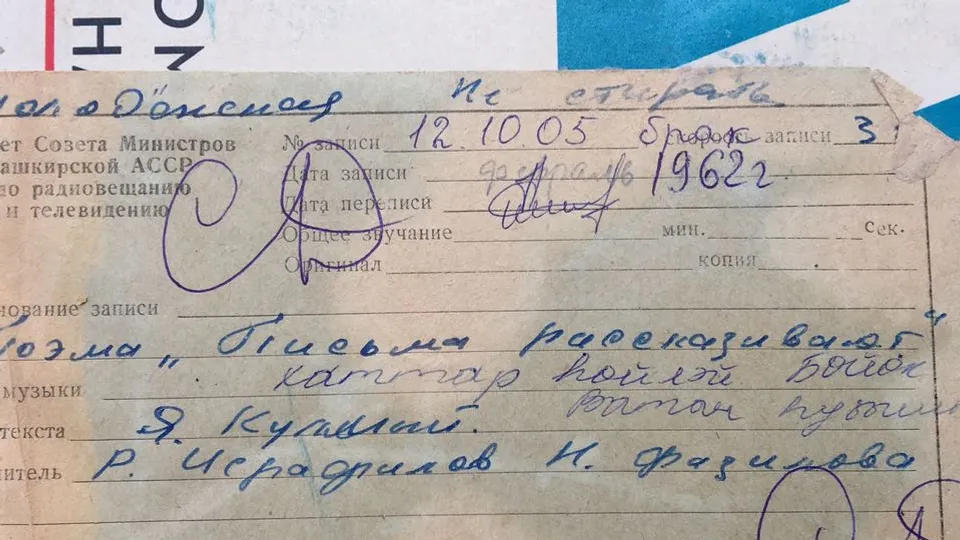 Не стирать
ет Совета Министров
ашкирской АССР
о радиовещанию
и телевидению
№ записи 12.10.05 брак скорость записи 3
Дата записи февраль 1962 г
Дата переписи
Общее звучание мин. сек.
Оригинал копия
нование записи
Поэма „Письма рассказывают"
музыки хаттар һөйләй Бөйөк
Ватан
текста Я. Кулмый.
итель Р. Исрафилов Н. Фазилова